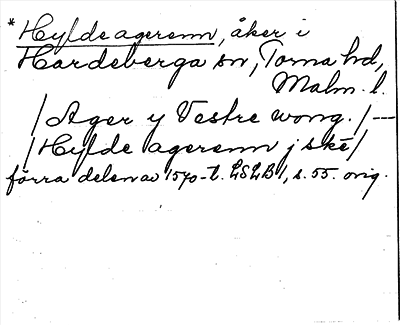 * Hyldeagerenn, åker i
Hardeberga sn, Torna hd,
Malm. l.
/ Ager y Vestre wong. / —
/ Hylde agerenn j skē /
förra delen av 1570-t. LSLB 1, s. 55. orig.